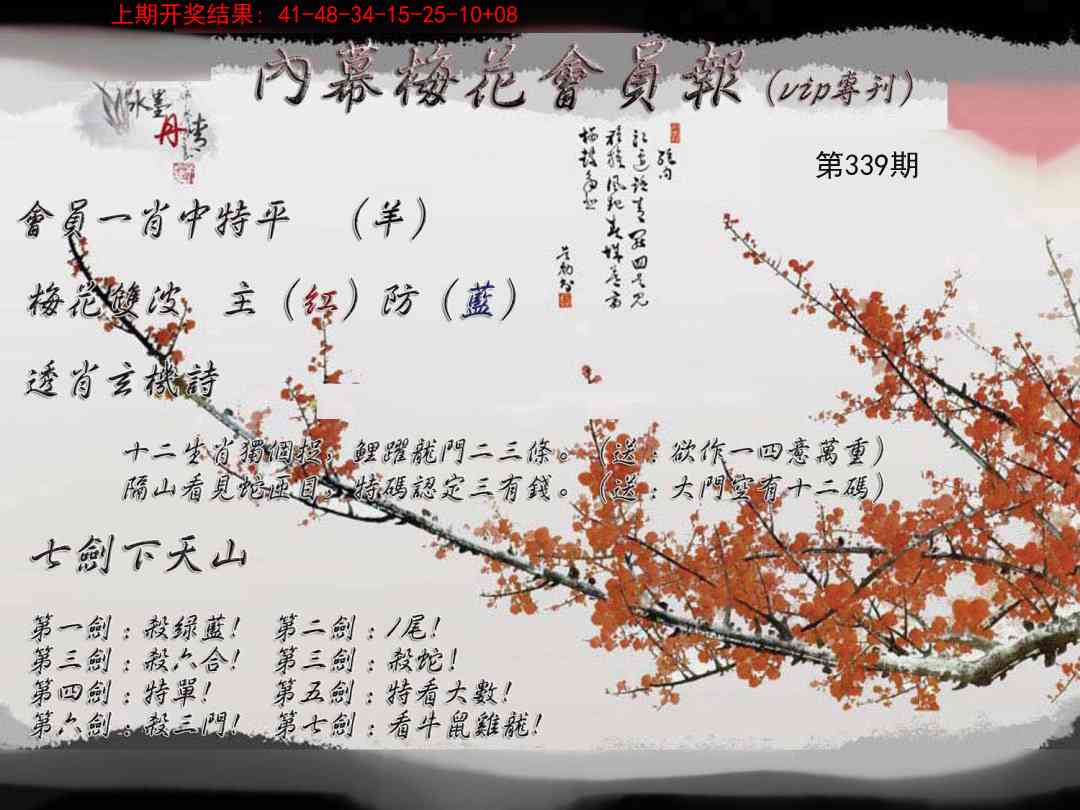 上期开奖结果: 41-48-34-15-25-10+08
內幕梅花會員報(vip專刊)
水墨
丹
第339期
會員一肖中特平 (羊)
梅花雙波 主(紅)防(藍)
透肖玄機詩
十二生肖獨個捉,鯉躍龍門二三條。(送:欲作一四意萬重)
隔山看見蛇匝目,特碼認定三有錢。(送:大門空有十二碼)
七劍下天山
第一劍:殺绿藍! 第二劍:1尾!
第三劍:殺六合! 第三劍:殺蛇!
第四劍:特單! 第五劍:特看大數!
第六劍:殺三門! 第七劍:看牛鼠雞龍!